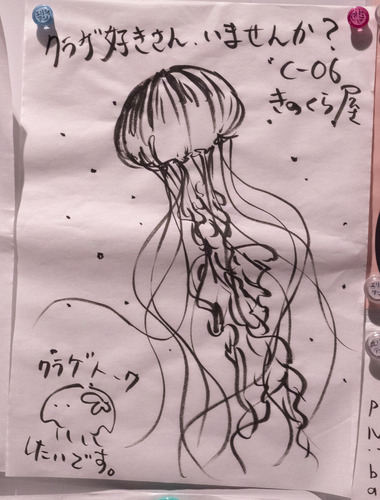 クラゲ好きさん、いませんか？
C-06
きのくら屋
クラゲトーク
したいです。